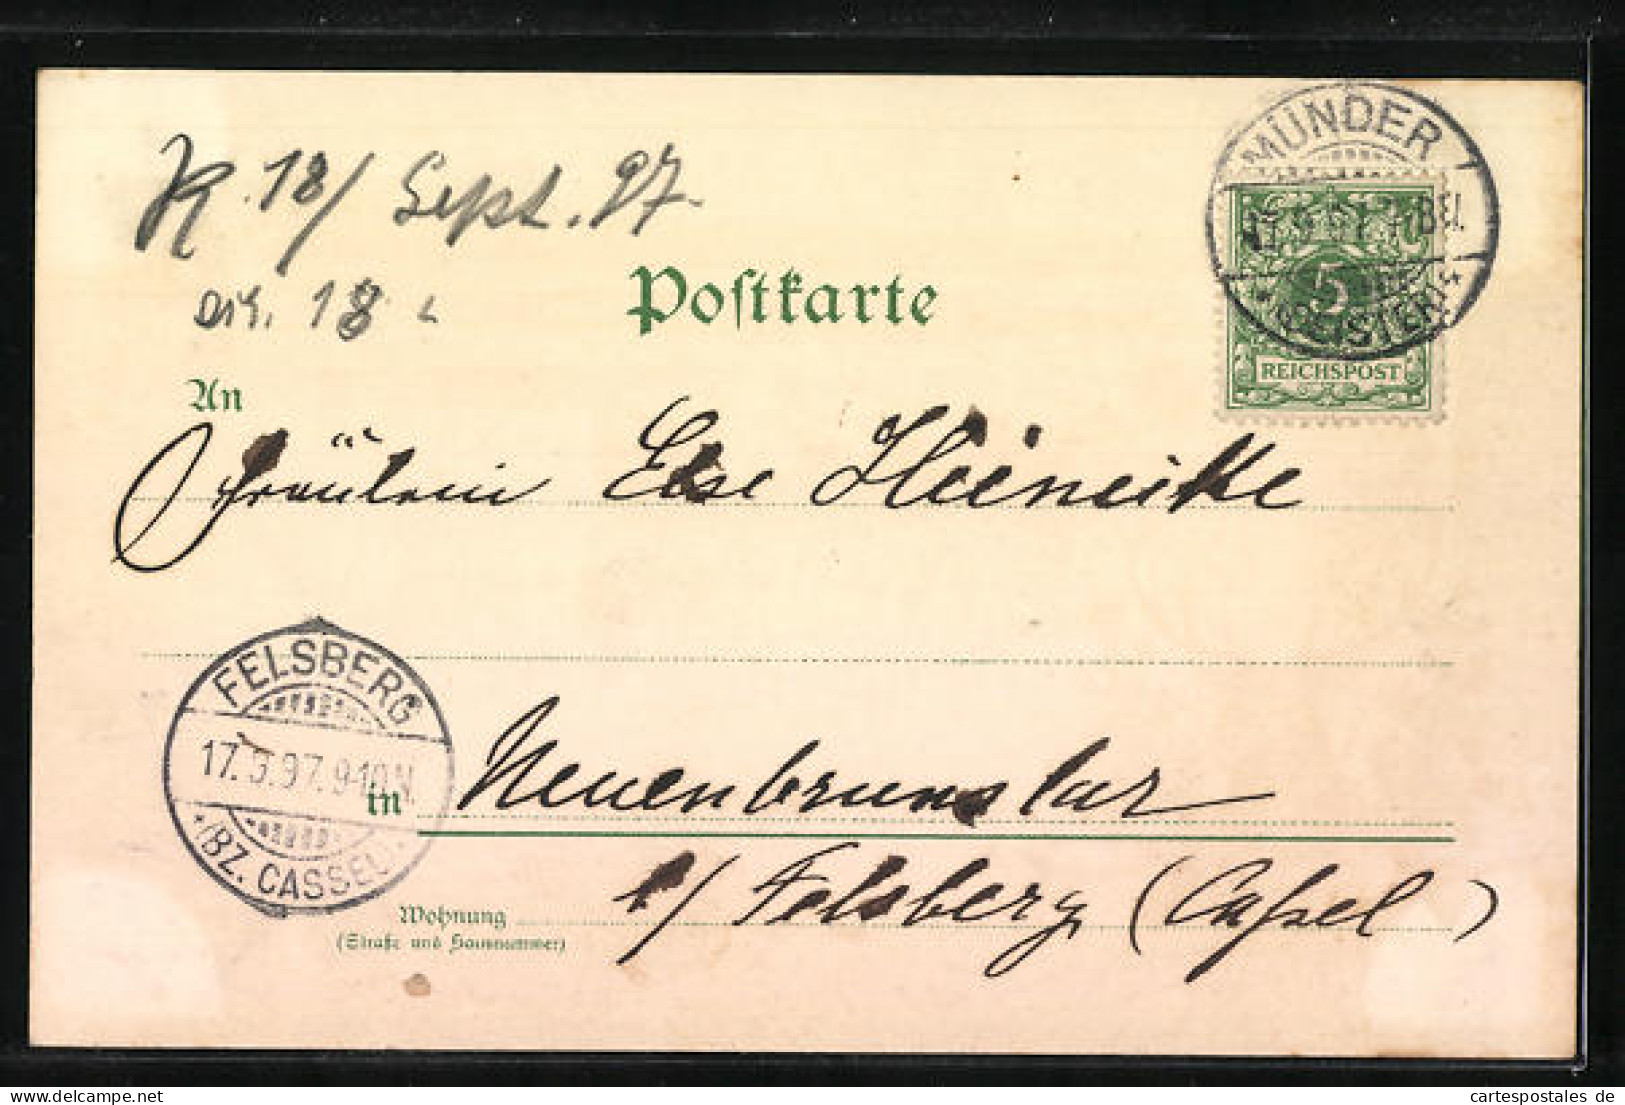 18/ Sept. 97.
18
Postkarte
MÜNDER
5
(DEISTER)
REICHSPOST
An
Fräulein Else Heinecke
FELSBERG
17. 9. 97. 9-10 N.
(BZ. CASSEL)
in Neuenbrunslar
b/ Felsberg (Cassel)
Wohnung
(Straße und Hausnummer)
cartespostales de